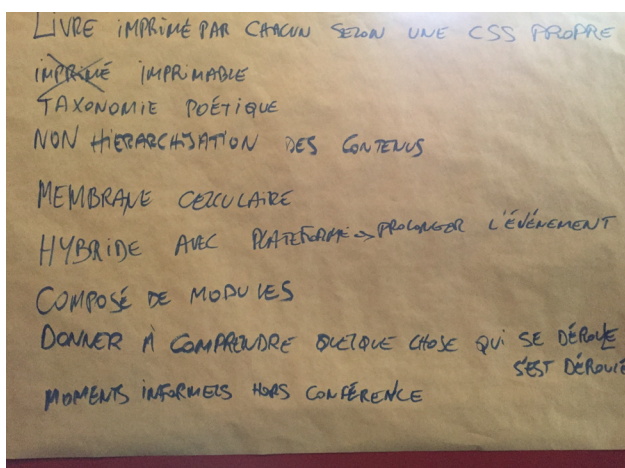 LIVRE IMPRIMÉ PAR CHACUN SELON UNE CSS PROPRE
IMPRIMÉ IMPRIMABLE
TAXONOMIE POÉTIQUE
NON HIERARCHISATION DES CONTENUS
MEMBRANE CELLULAIRE
HYBRIDE AVEC PLATEFORME → PROLONGER L'ÉVÉNEMENT
COMPOSÉ DE MODULES
DONNER À COMPRENDRE QUELQUE CHOSE QUI SE DÉROULE
S'EST DÉROULÉ
MOMENTS INFORMELS HORS CONFÉRENCE